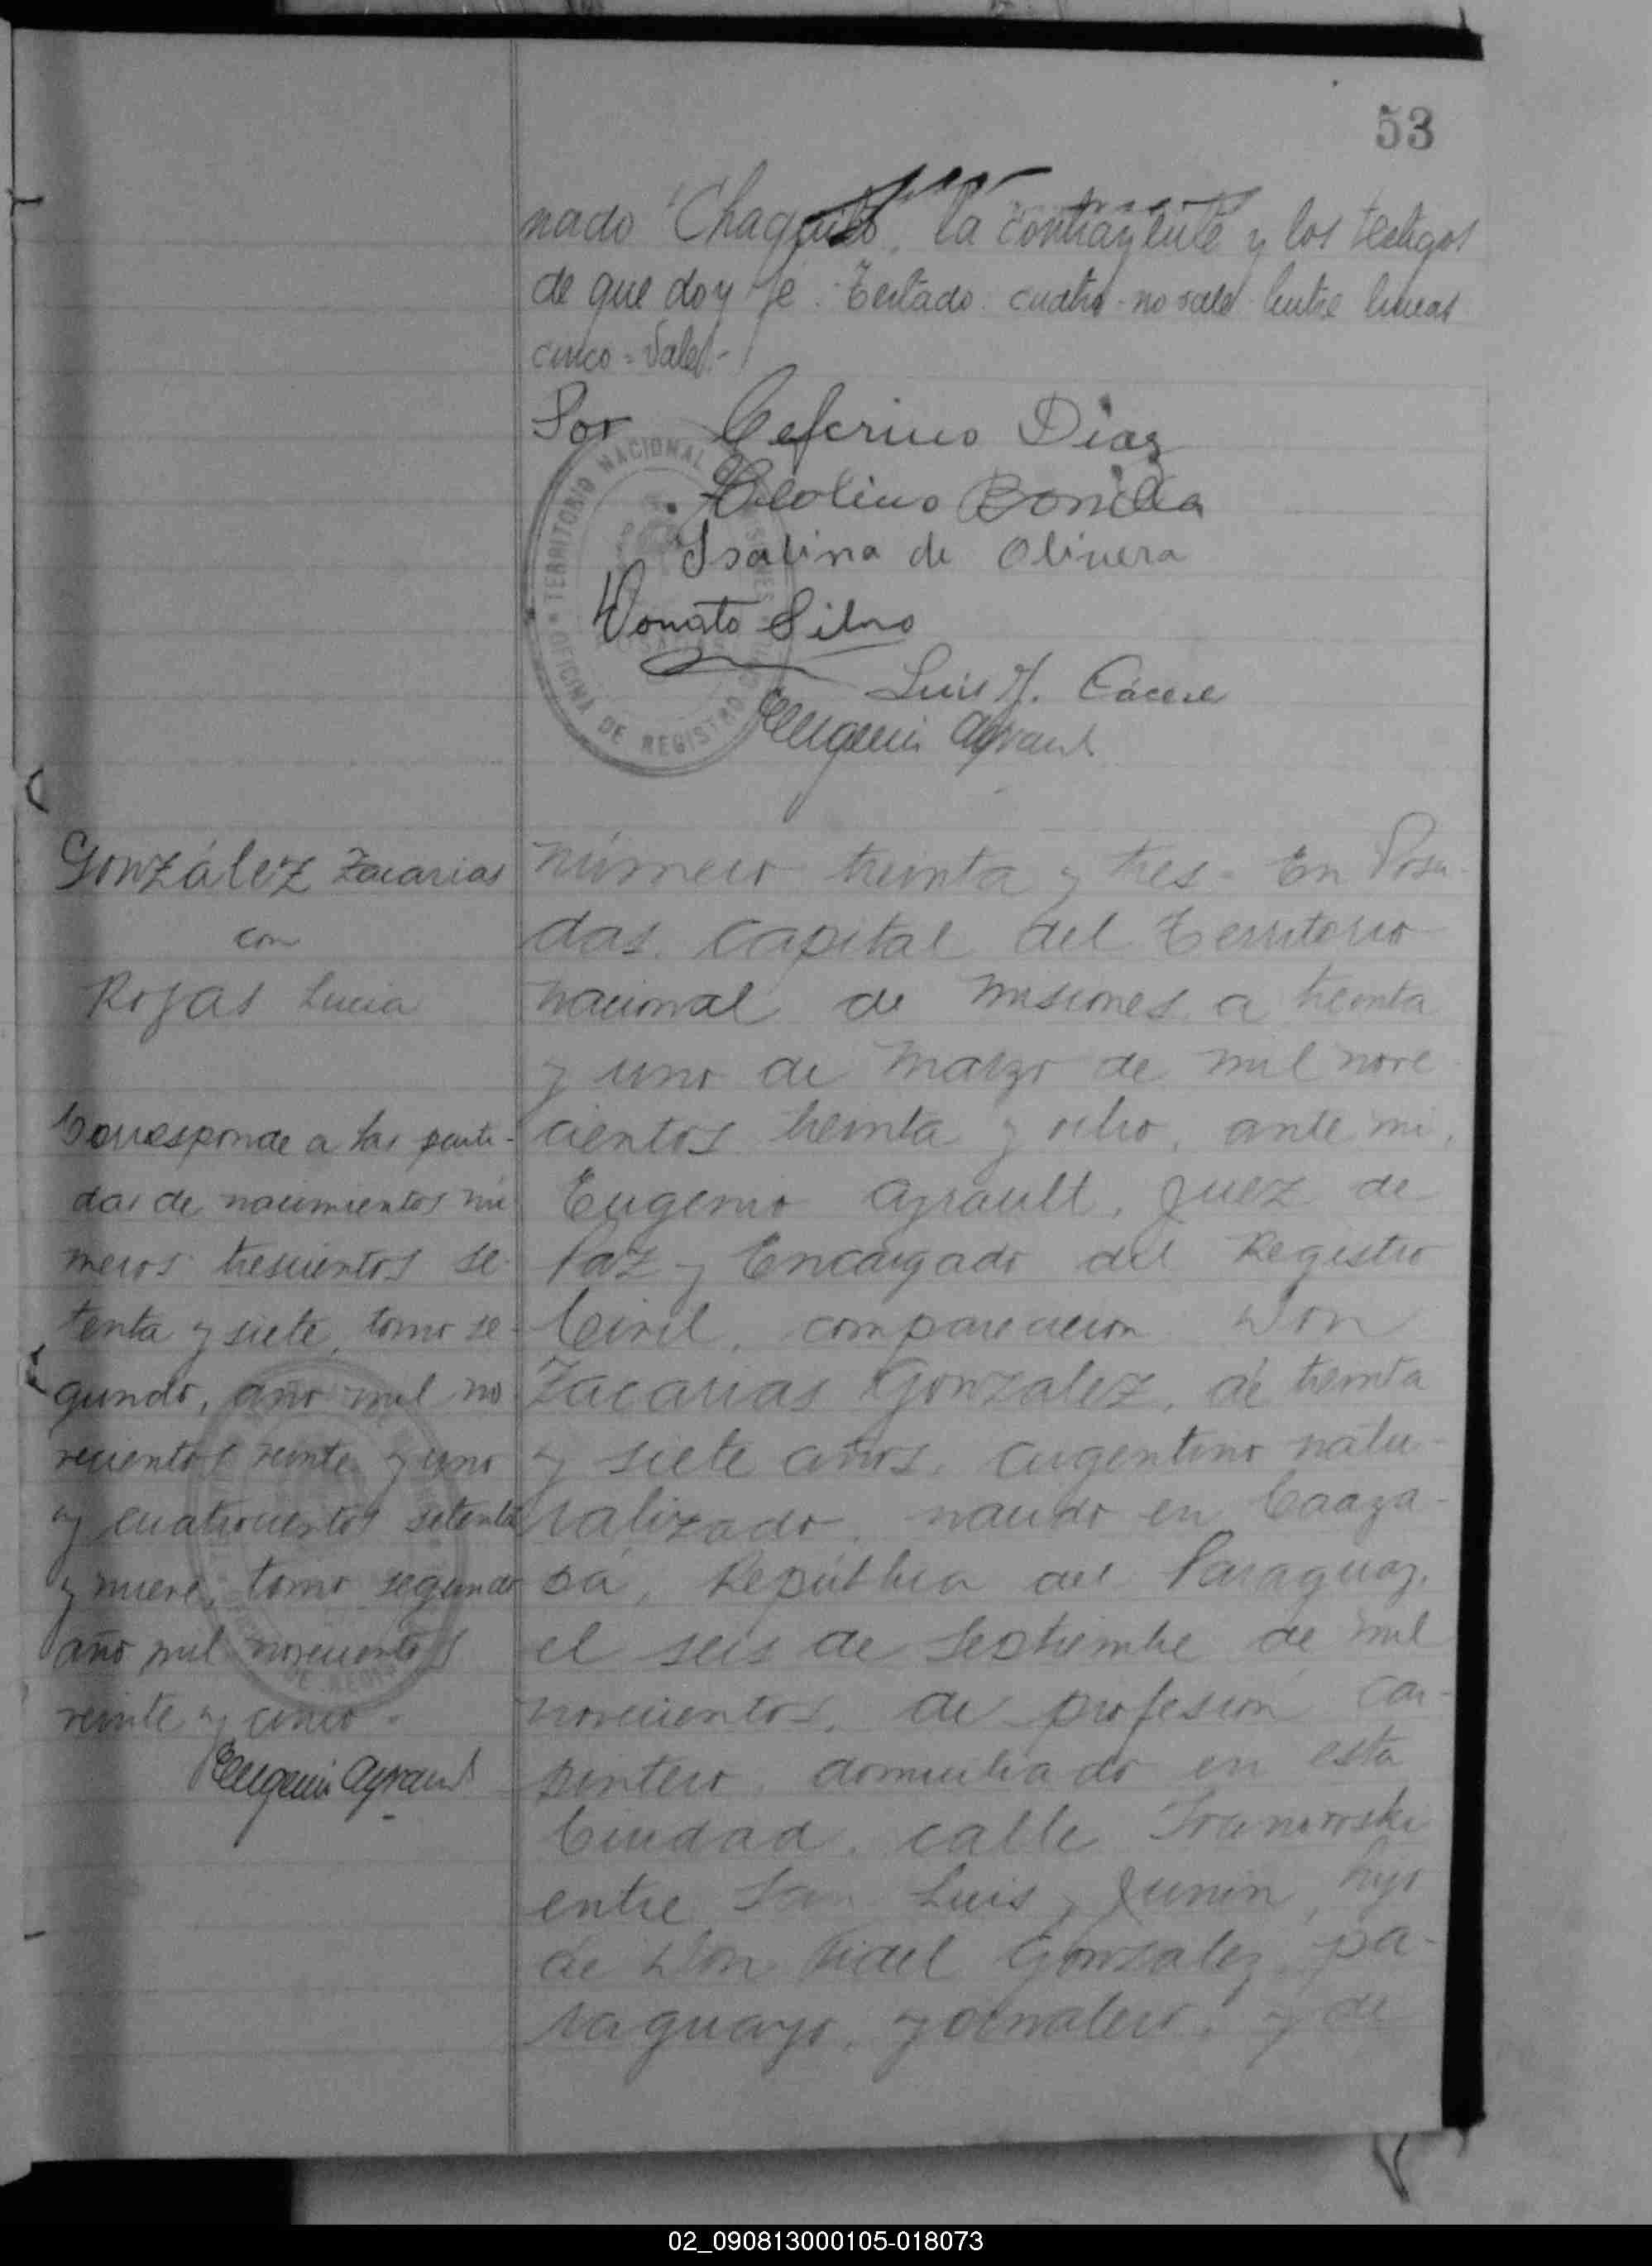 53
nado "Chaquito", la contrayente y los testigos
de que doy fe. Testado: cuatro- no vale- Entre lineas
cinco = Vale.-
Por Ceferino Diaz
Clolino Bonilla
Isalina de Olivera
Donato Silva
Luis Cácere
Eugenio Ayrault
TERRITORIO NACIONAL MISIONES
OFICINA DE REGISTRO CIVIL
González Zacarias
con
Rojas Lucia
Corresponde a las parti-
das de nacimientos nú
meros trescientos se-
tenta y siete, tomo se-
gundo, año mil no
vecientos veinte y uno
y cuatrocientos setenta
y nueve, tomo segundo
año mil novecientos
veinte y cinco.
Eugenio Ayrault
Número treinta y tres- En Posa-
das, capital del Territorio
Nacional de Misiones a treinta
y uno de Marzo de mil nove-
cientos treinta y ocho, ante mi,
Eugenio Ayrault, Juez de
Paz y Encargado del Registro
Civil, comparecieron: Don
Zacarias González, de treinta
y siete años, argentino natu-
ralizado, nacido en Caaza-
pá, República del Paraguay,
el seis de Septiembre de mil
novecientos, de profesión car-
pintero, domiciliado en esta
Ciudad, calle
entre San Luis y Junin, hijo
de Don Fidel González, pa-
raguayo, jornalero, y de
02_090813000105-018073